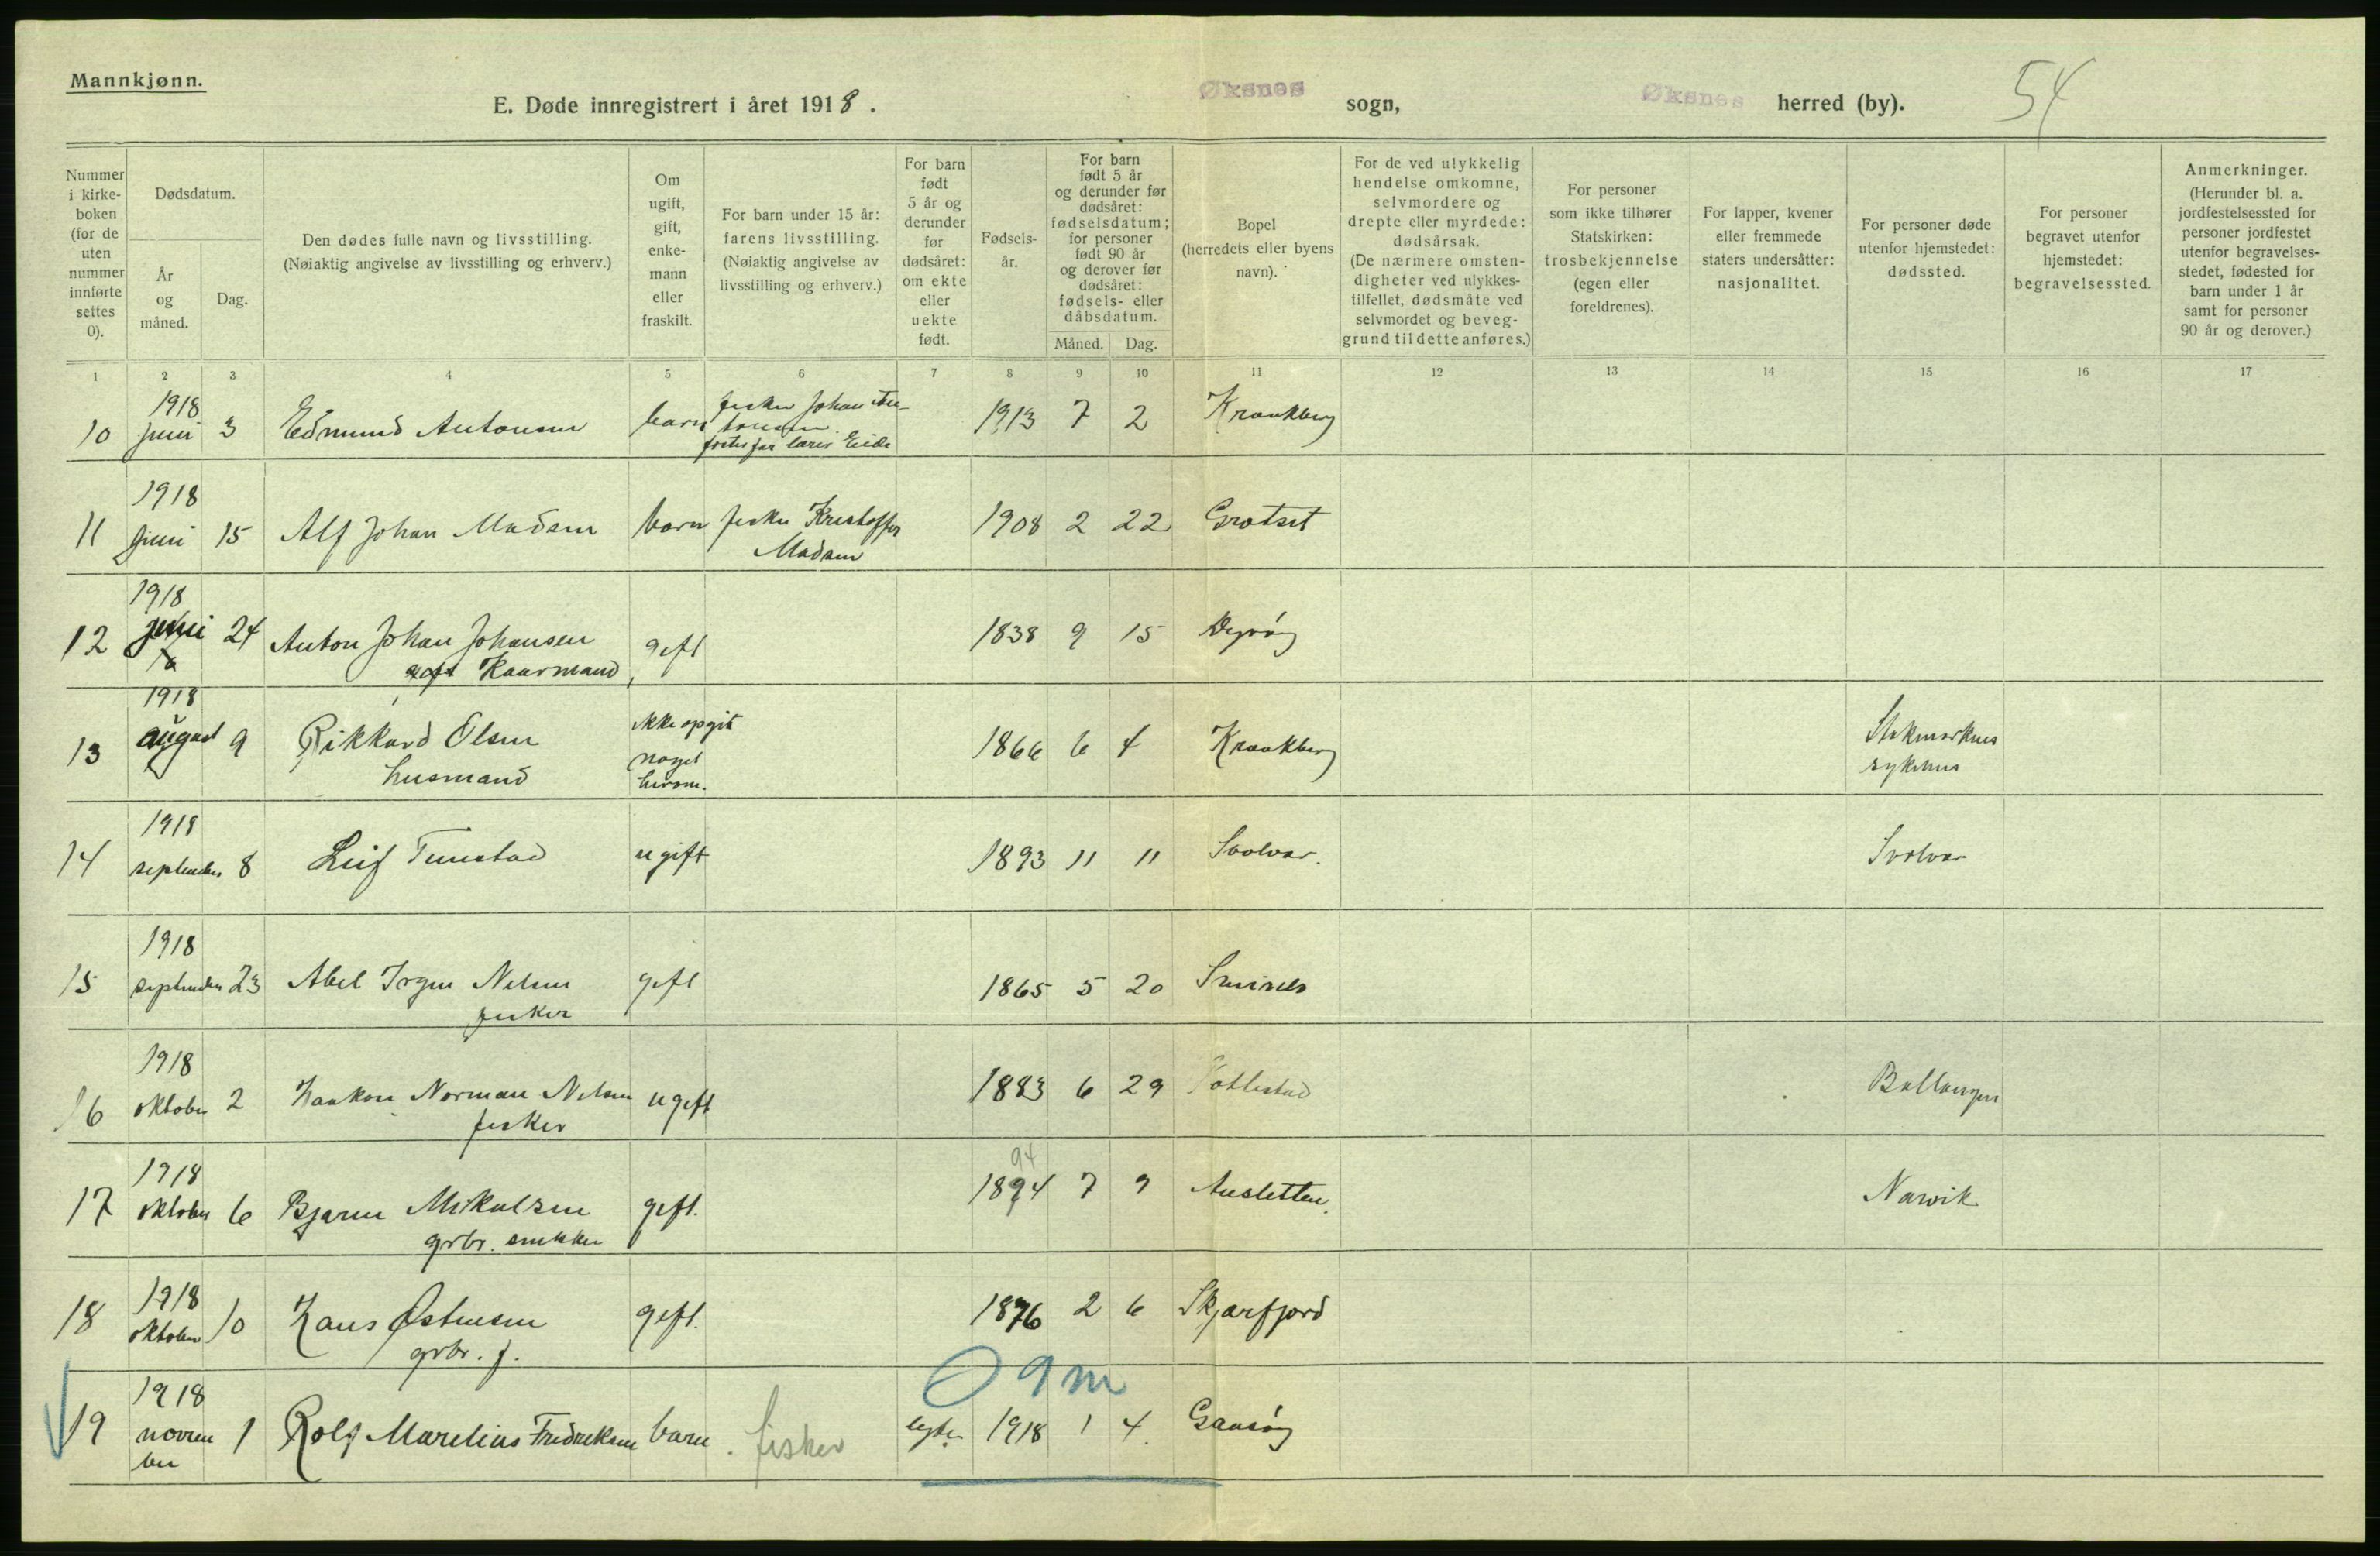 Mannkjønn.
E. Døde innregistrert i året 1918.
Øksnes sogn,
Øksnes herred (by).
54
Nummer i kirke-boken (for de uten nummer innførte settes 0).
Dødsdatum.
År og måned.
Dag.
Den dødes fulle navn og livsstilling.
(Nøiaktig angivelse av livsstilling og erhverv.)
Om ugift, gift, enke-mann eller fraskilt.
For barn under 15 år: farens livsstilling. (Nøiaktig angivelse av livsstilling og erhverv.)
For barn født 5 år og derunder før dødsåret: om ekte eller uekte født.
Fødsels-år.
For barn født 5 år og derunder før dødsåret: fødselsdatum; for personer født 90 år og derover før dødsåret: fødsels- eller dåbsdatum.
Måned. Dag.
Bopel (herredets eller byens navn).
For de ved ulykkelig hendelse omkomne, selvmordere og drepte eller myrdede: dødsårsak. (De nærmere omsten-digheter ved ulykkes-tilfellet, dødsmåte ved selvmordet og beveg-grund til dette anføres.)
For personer som ikke tilhører Statskirken: trosbekjennelse (egen eller foreldrenes).
For lapper, kvener eller fremmede staters undersåtter: nasjonalitet.
For personer døde utenfor hjemstedet: dødssted.
For personer begravet utenfor hjemstedet: begravelsessted.
Anmerkninger. (Herunder bl. a. jordfestelsessted for personer jordfestet utenfor begravelses-stedet, fødested for barn under 1 år samt for personer 90 år og derover.)
1 2 3 4 5 6 7 8 9 10 11 12 13 14 15 16 17
10 1918 juni 3 Edmund Antonsen barn fisker Johan An-tonsen. fosterfar lærer Eide 1913 7 2 Kraakberg
11 1918 juni 15 Alf Johan Madsen barn fisker Kristoffer Madsen 1908 2 22 Grotset
12 1918 juni 24 Anton Johan Johansen Kaarmand, gift 1838 9 15 Dyrøy
13 1918 august 9 Rikkard Olsen husmand ikke opgit noget herom. 1866 6 4 Kraakberg Stokmarknes sykehus
14 1918 september 8 Leif Tunstad ugift 1893 11 11 Svolvær. Svolvær
15 1918 september 23 Abel Irgen Nilsen fisker gift 1865 5 20 Smines
16 1918 oktober 2 Haakon Norman Nilsen fisker ugift 1883 6 29 Ballangen
17 1918 oktober 6 Bjarne Mikalsen grbr. snekker gift. 94 1894 7 9 Ausletten. Narvik
18 1918 oktober 10 Hans Østensen grbr. f. gift. 1876 2 6 Skjærfjord
0 9 m
19 1918 novem ber 1 Rolf Marelius Fredriksen barn. fisker egte. 1918 1 4. Gaasøy